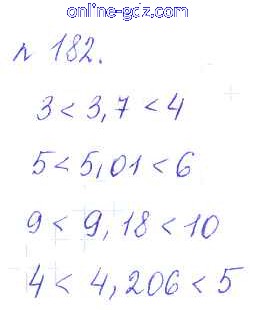 online-gdz.com
n 182.
3 < 3,7 < 4
5 < 5,01 < 6
9 < 9,18 < 10
4 < 4,206 < 5